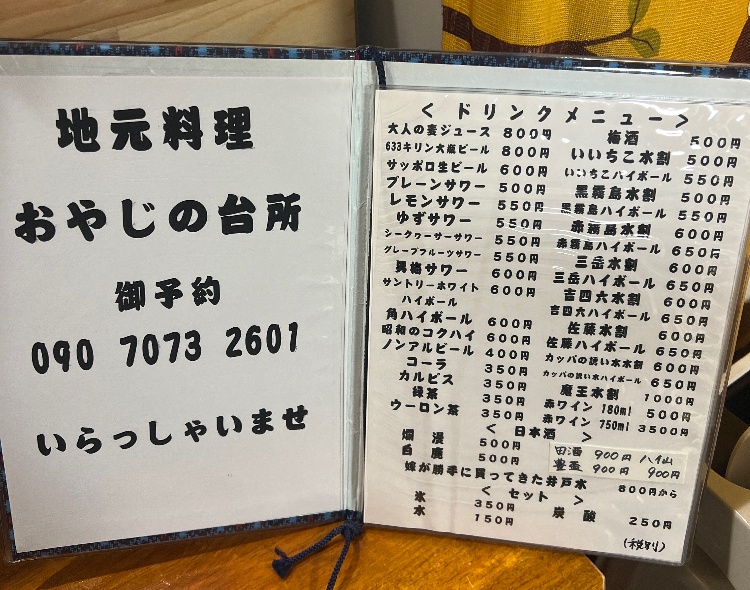 地元料理
おやじの台所
御予約
090 7073 2601
いらっしゃいませ
< ドリンクメニュー >
大人の麦ジュース 800円
633キリン大瓶ビール 800円
サッポロ生ビール 600円
プレーンサワー 500円
レモンサワー 550円
ゆずサワー 550円
シークヮーサーサワー 550円
グレープフルーツサワー 550円
男梅サワー 600円
サントリーホワイト 600円
ハイボール
角ハイボール 600円
昭和のコクハイ 600円
ノンアルビール 400円
コーラ 350円
カルピス 350円
緑茶 350円
ウーロン茶 350円
梅酒 500円
いいちこ水割 500円
いいちこハイボール 550円
黒霧島水割 500円
黒霧島ハイボール 550円
赤霧島水割 600円
赤霧島ハイボール 650円
三岳水割 600円
三岳ハイボール 650円
吉四六水割 600円
吉四六ハイボール 650円
佐藤水割 600円
佐藤ハイボール 650円
カッパの誘い水水割 600円
カッパの誘い水ハイボール 650円
魔王水割 1000円
赤ワイン 180ml 500円
赤ワイン 750ml 3500円
< 日本酒 >
爛漫 500円
白鹿 500円
田酒 900円 八仙
豊盃 900円 900円
嫁が勝手に買ってきた井戸水 800円から
< セット >
氷 350円 炭酸 250円
水 150円
(税別)